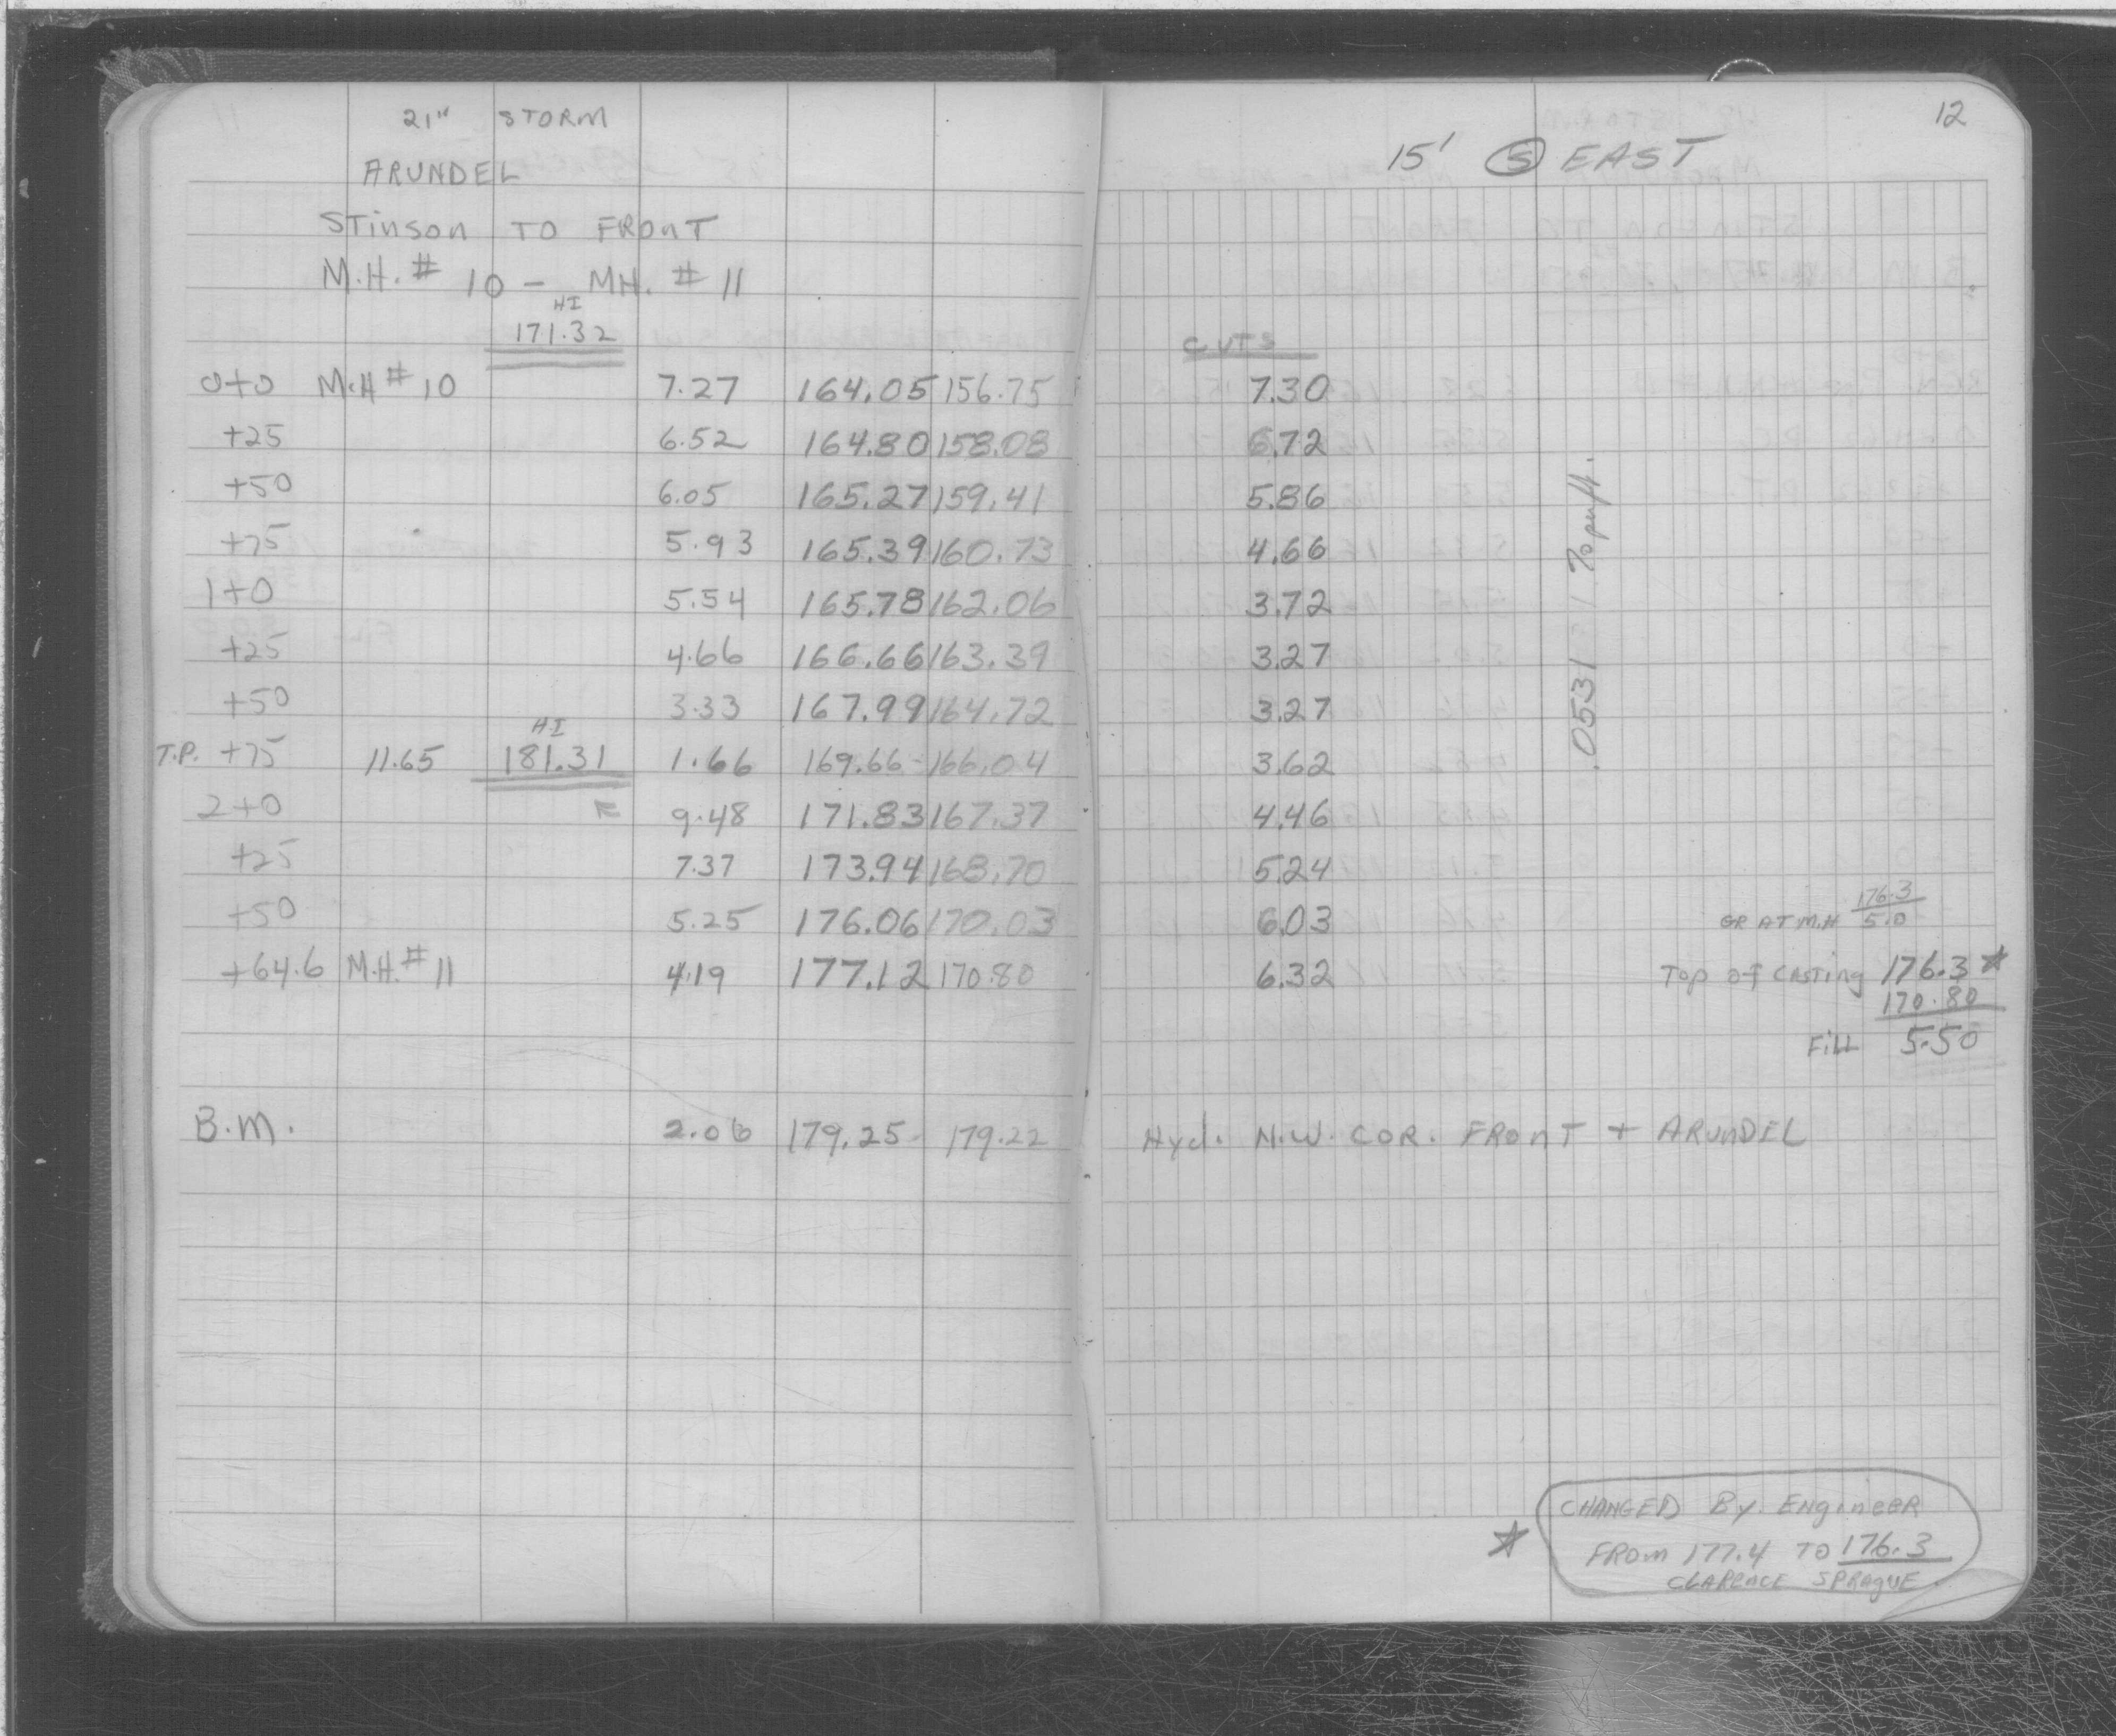 21" STORM
ARUNDEL
STinson TO FRONT
M.H. # 10 - MH. # 11
HI
171.32
0+0 M.H # 10 7.27 164.05 156.75
+25 6.52 164.80 158.08
+50 6.05 165.27 159.41
+75 5.93 165.39 160.73
1+0 5.54 165.78 162.06
+25 4.66 166.66 163.39
+50 3.33 167.99 164.72
H.I
T.P. +75 11.65 181.31 1.66 169.66 - 166.04
2+0 9.48 171.83 167.37
+25 7.37 173.94 168.70
+50 5.25 176.06 170.03
+64.6 M.H. # 11 4.19 177.12 170.80
B.M. 2.06 179.25 179.22
12
15' S EAST
CUTS
7.30
6.72
5.86
4.66
3.72
3.27
3.27
3.62
4.46
5.24
6.03
6.32
.0531
GR AT M.H 176.3
5.0
Top of Casting 176.3 *
170.80
Fill 5.50
Hyd. N.W. COR. FRONT + ARUNDEL
* CHANGED By Engineer
FROM 177.4 TO 176.3
CLARENCE SPRAGUE